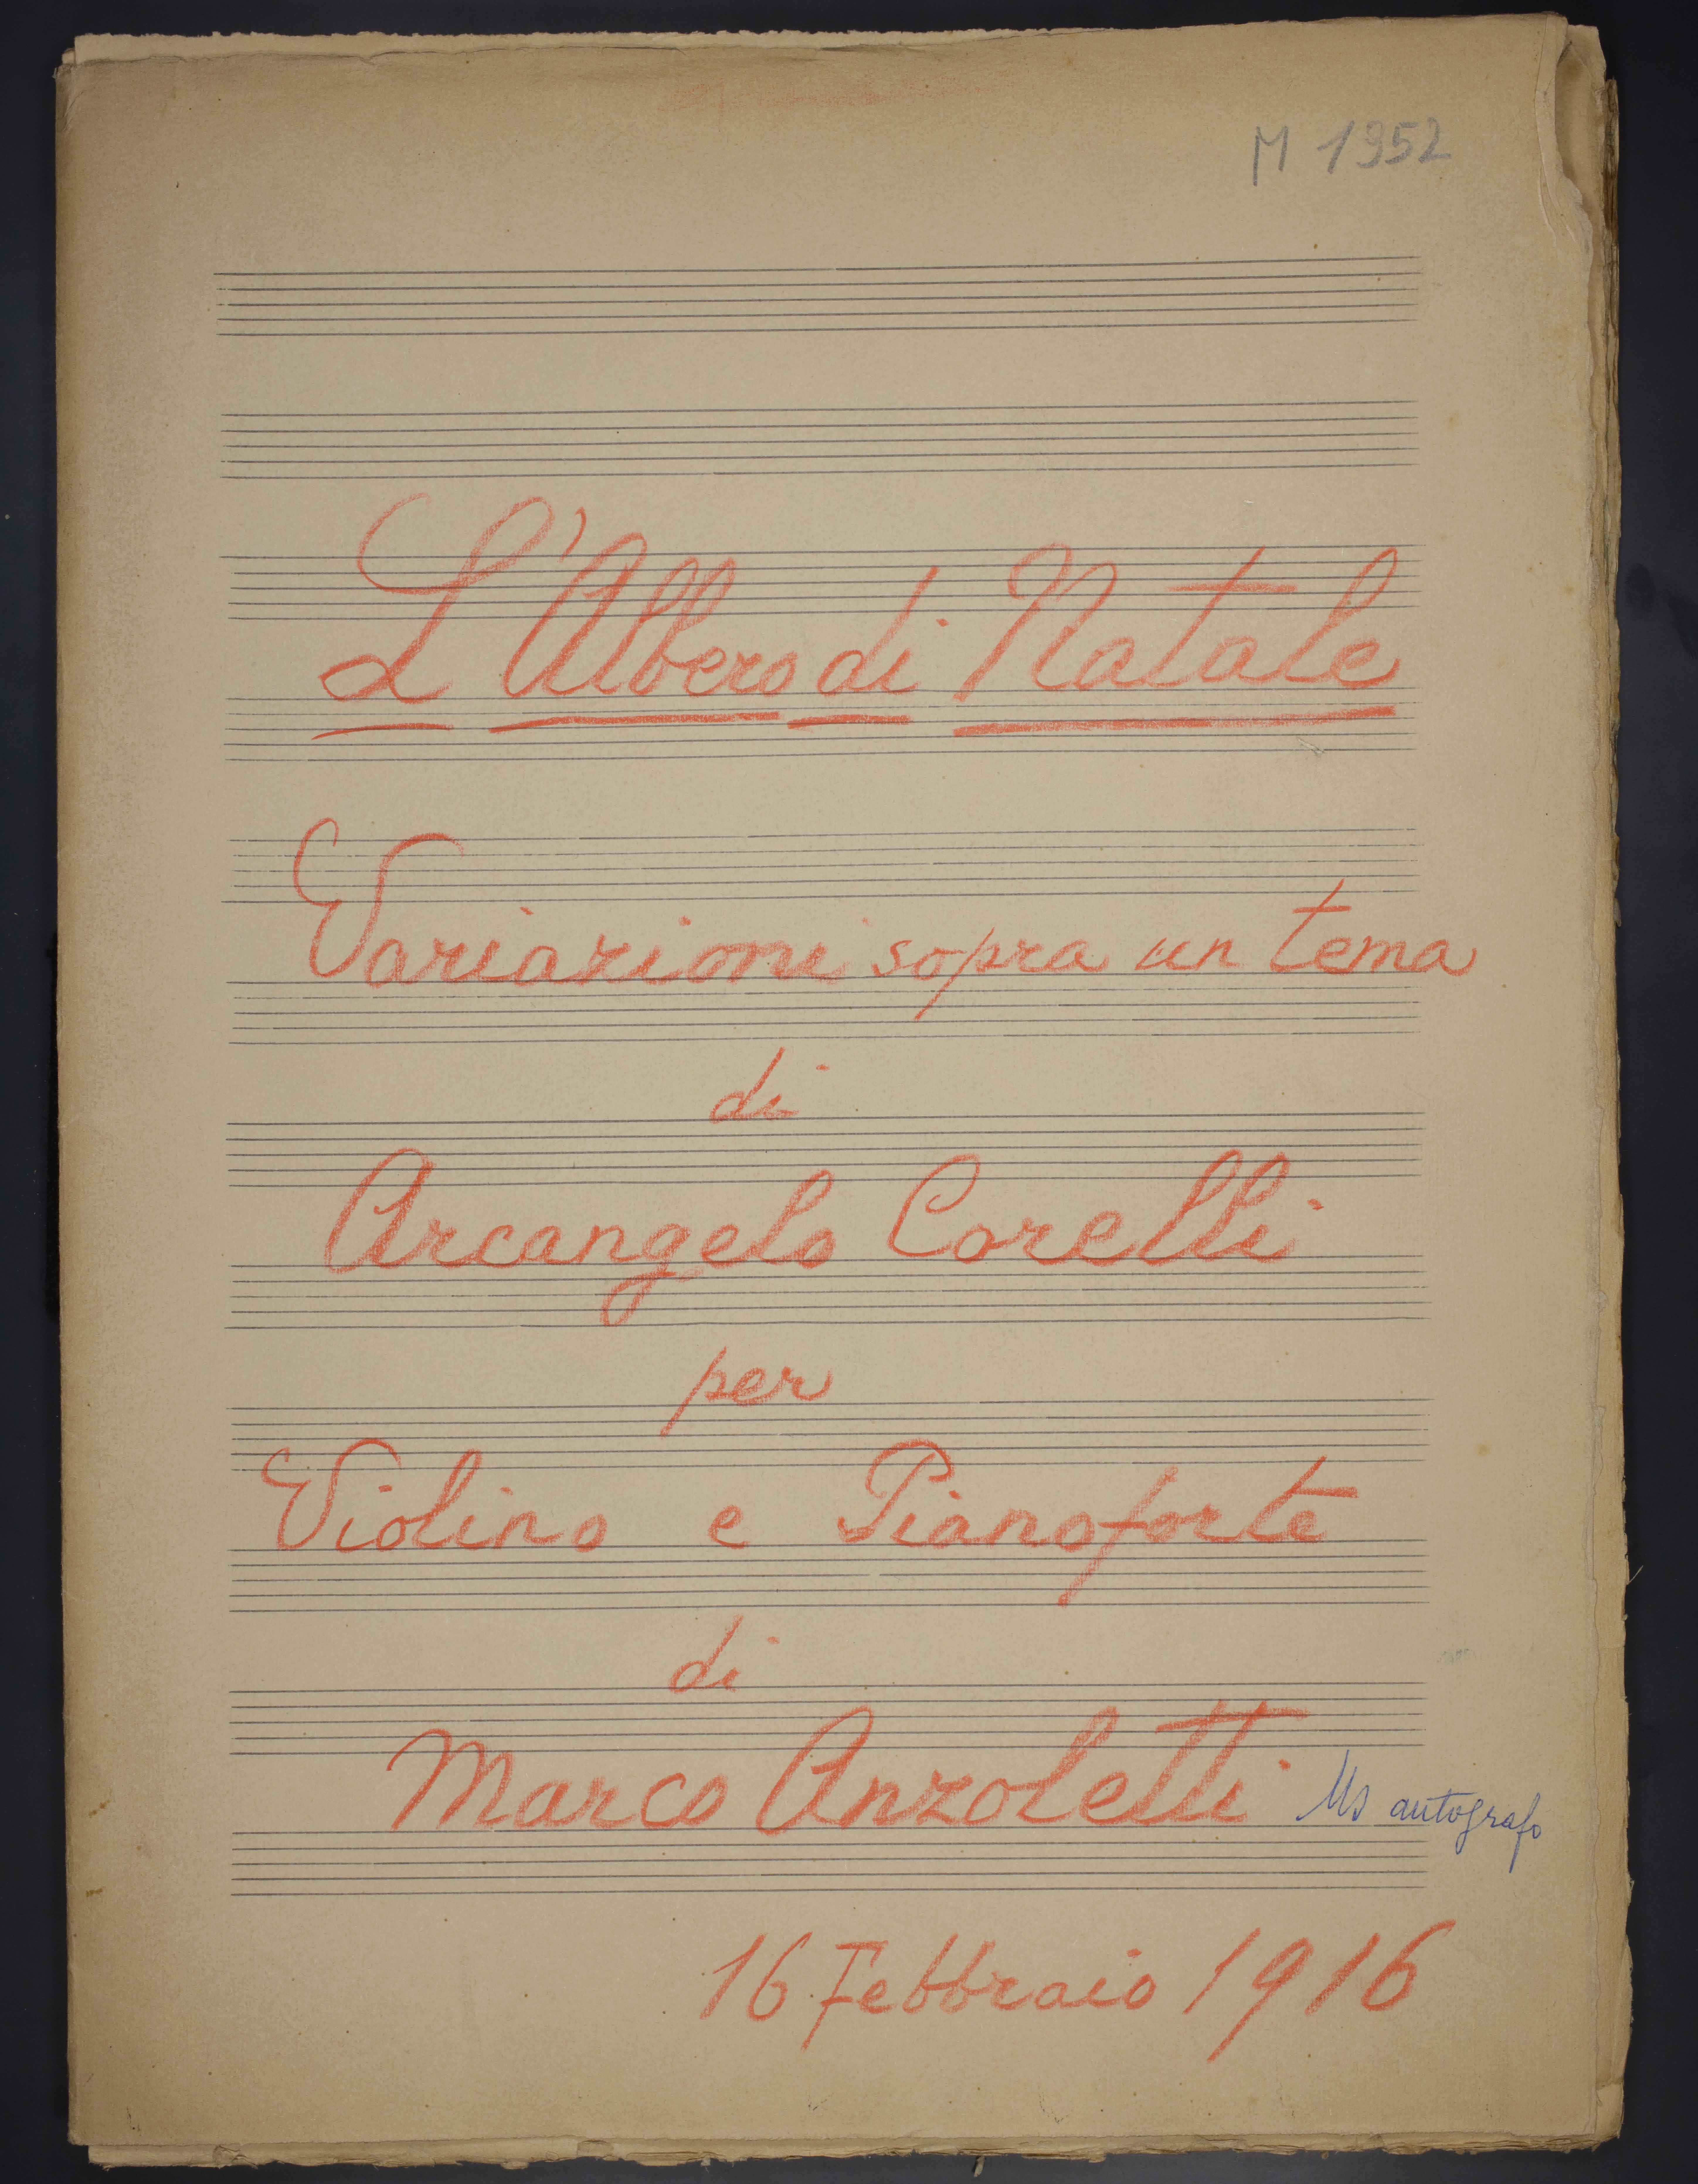 M 1952
L'Albero di Natale
Variazioni sopra un tema
di
Arcangelo Corelli
per
Violino e Pianoforte
di
Marco Anzoletti
Ms autografo
16 Febbraio 1916